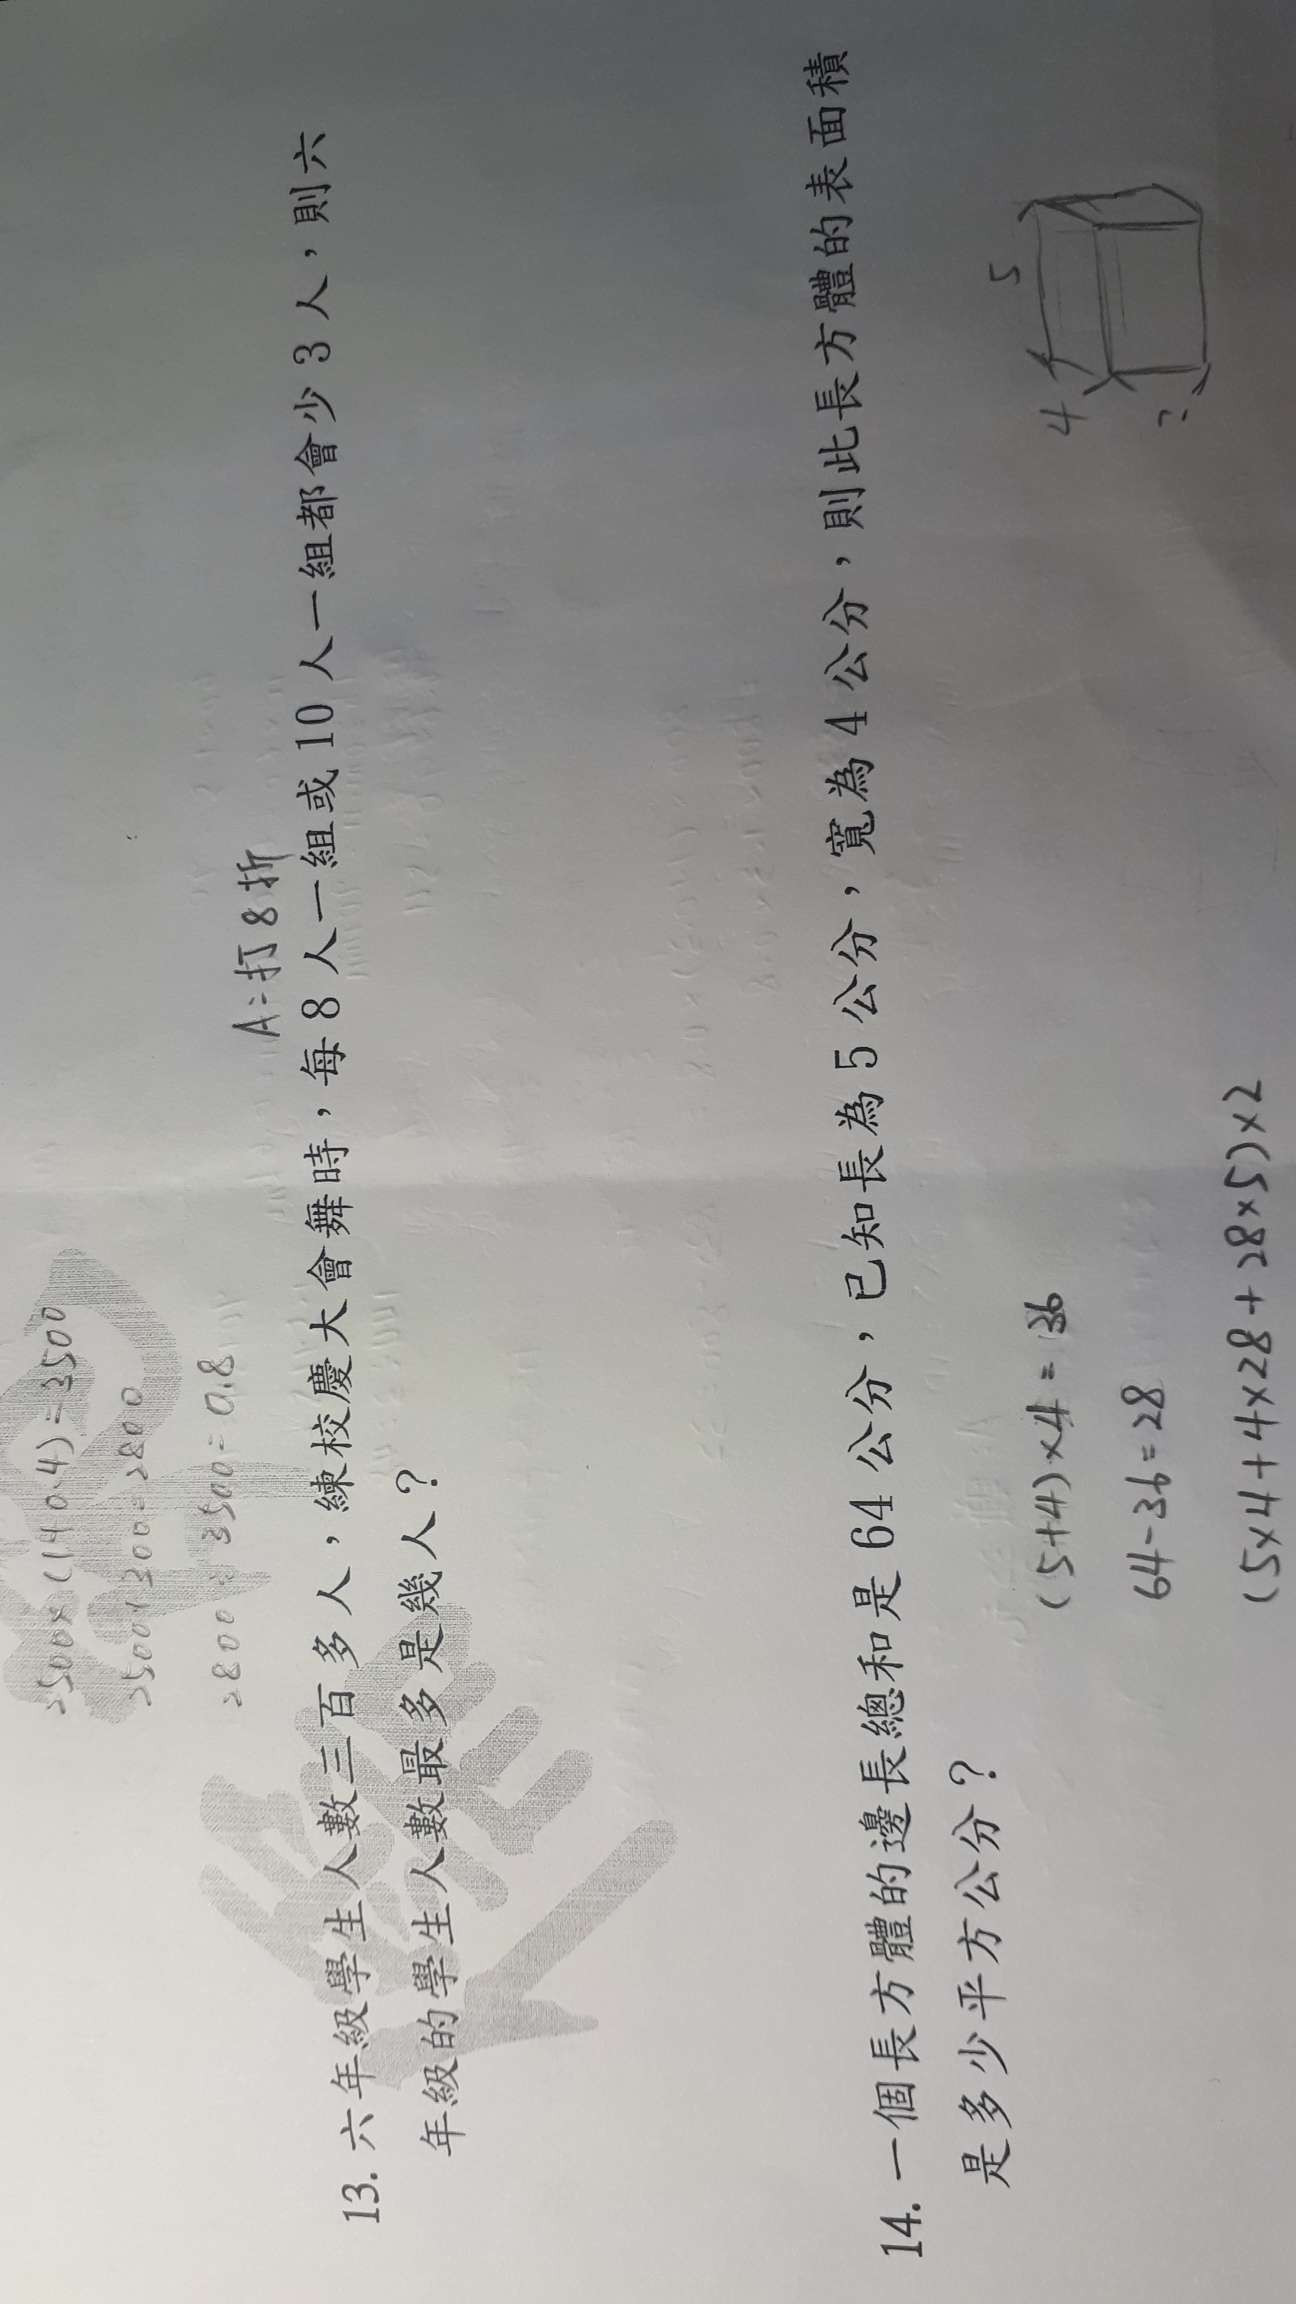 2500×(1+0.4)=3500
2500+300=2800
2800÷3500=0.8
A:打8折
13. 六年級學生人數三百多人，練校慶大會舞時，每 8 人一組或 10 人一組都會少 3 人，則六
年級的學生人數最多是幾人？
14. 一個長方體的邊長總和是 64 公分，已知長為 5 公分，寬為 4 公分，則此長方體的表面積
是多少平方公分？
(5+4)×4=36
64-36=28
(5×4+4×28+28×5)×2
4
5
?